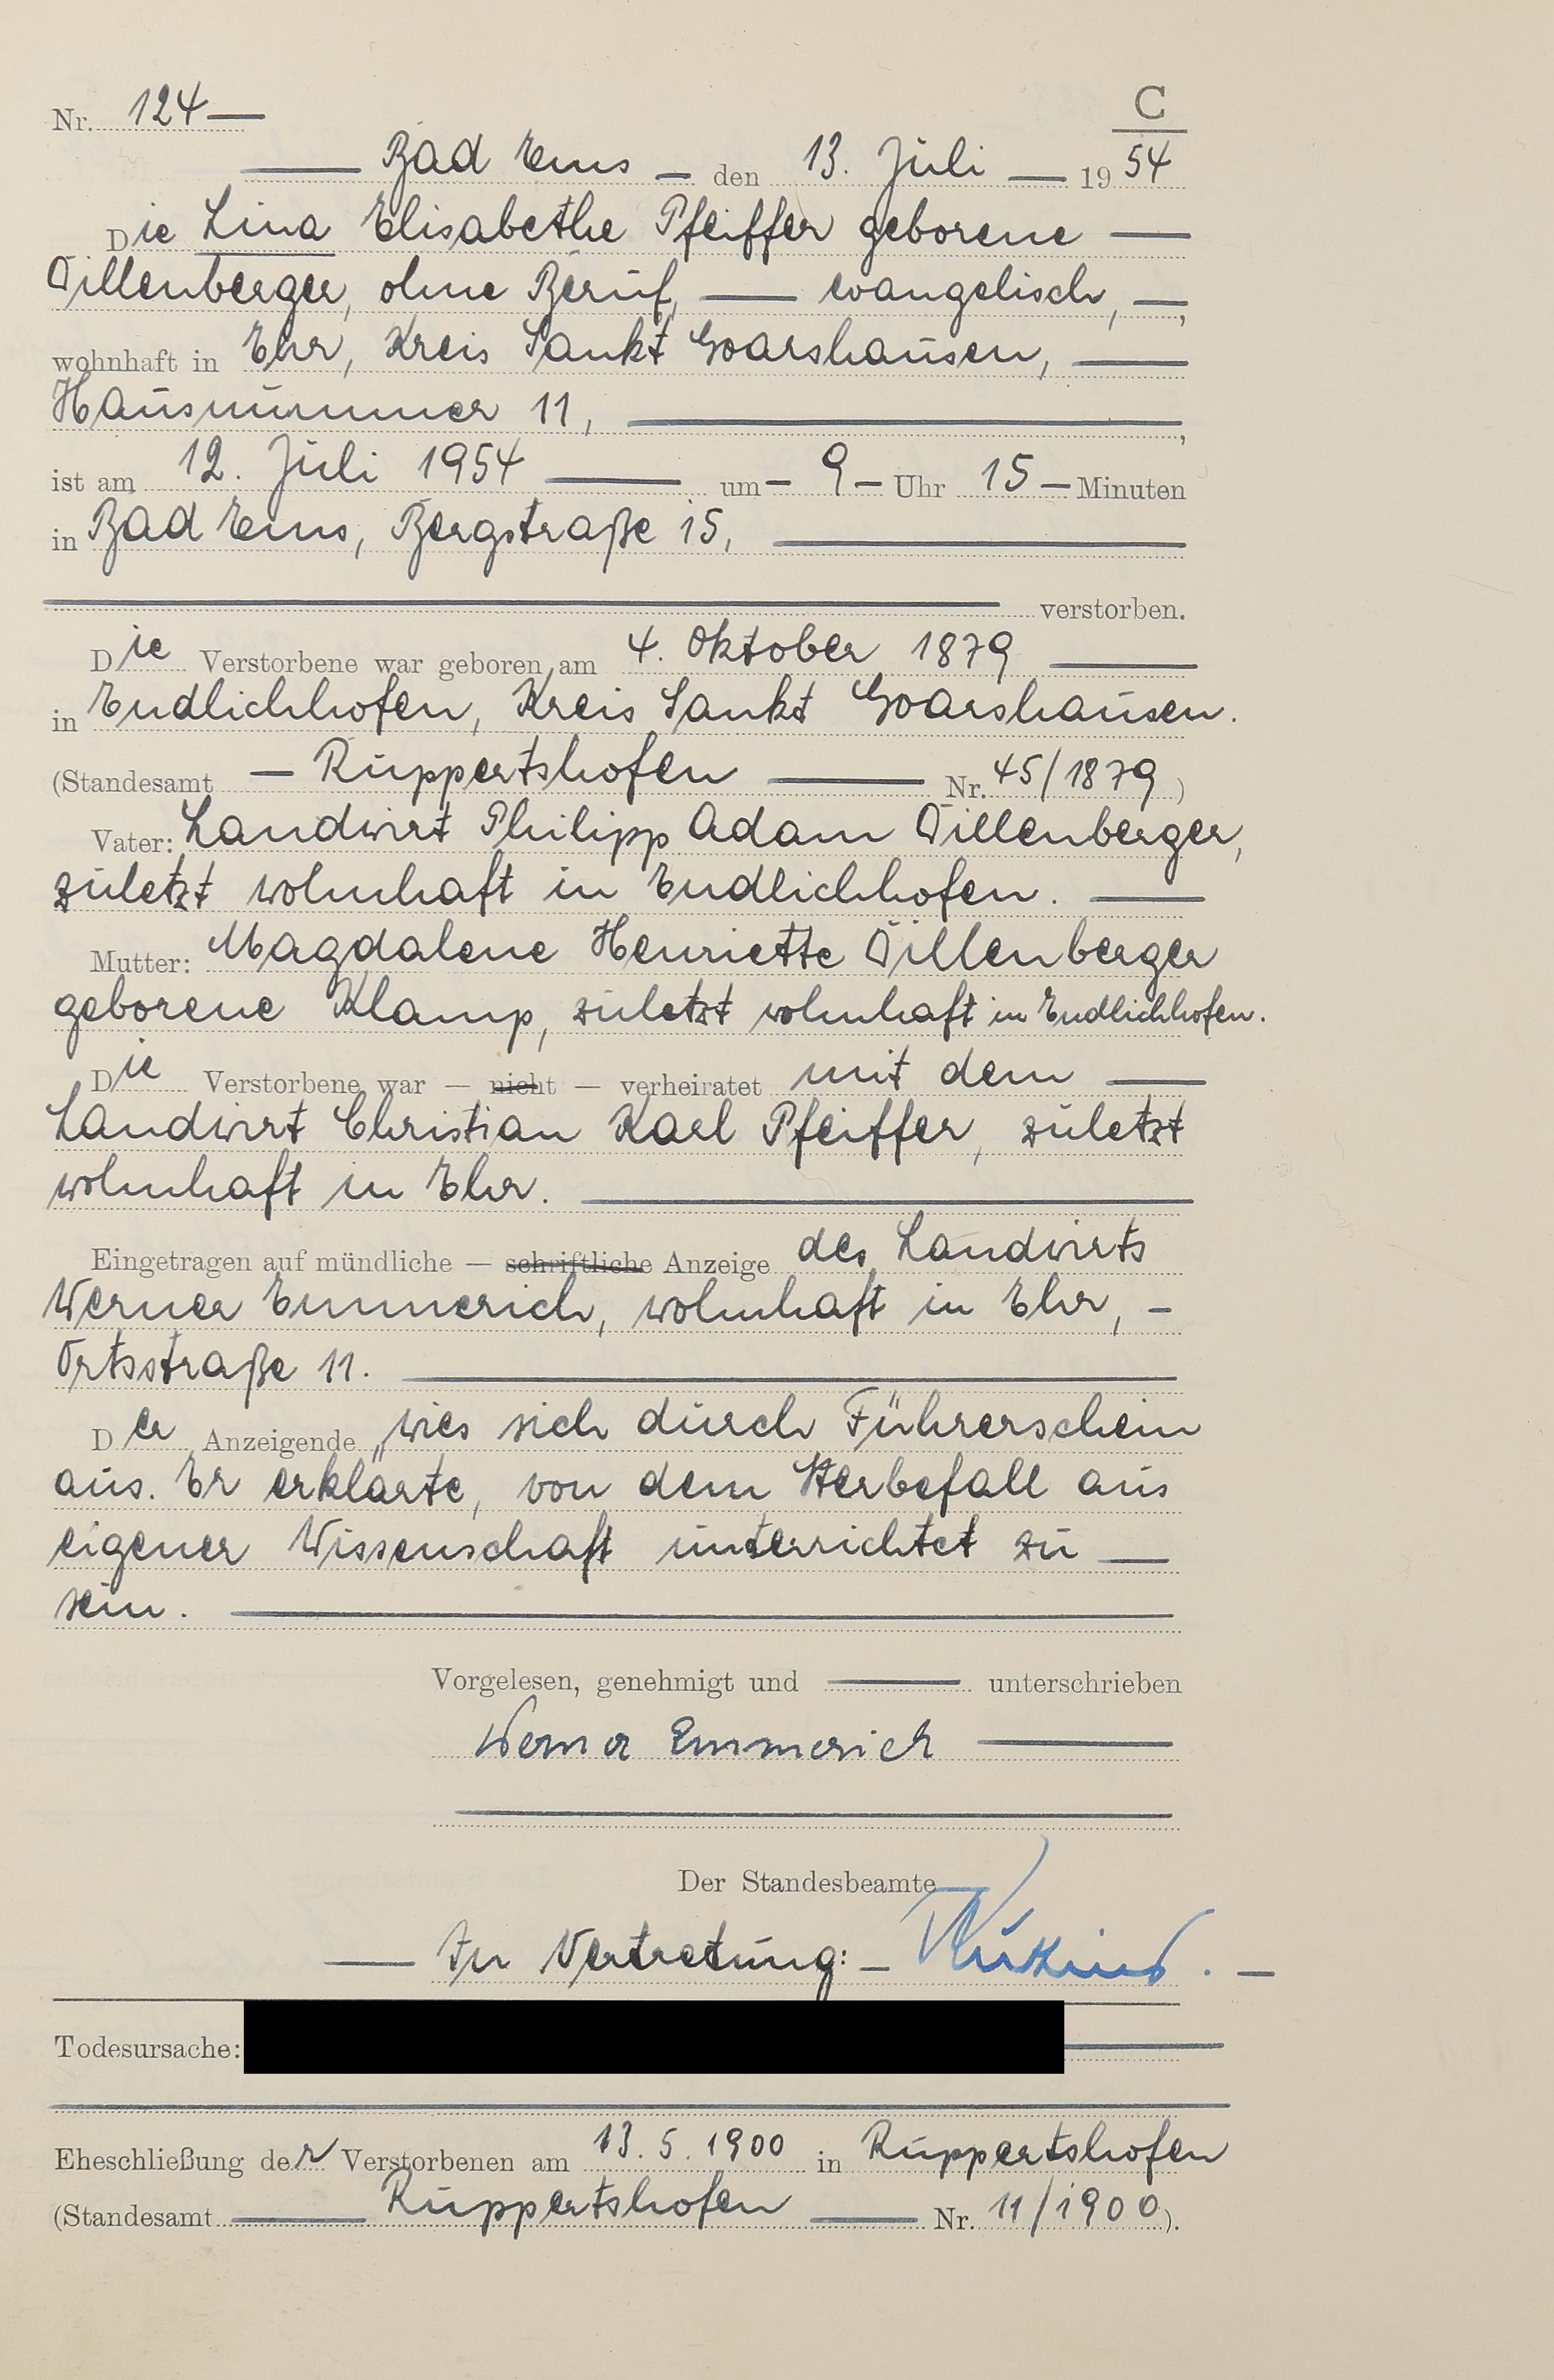 Nr. 124—
C
— Bad Ems — den 13. Juli — 1954
Die Lina Elisabethe Pfeiffer geborene —
Dillenberger, ohne Beruf, — evangelisch, —,
wohnhaft in Ehr, Kreis Sankt Goarshausen, —
Hausnummer 11, —,
ist am 12. Juli 1954 — um — 9 — Uhr 15 — Minuten
in Bad Ems, Bergstraße 15, —
— verstorben.
Die Verstorbene war geboren am 4. Oktober 1879 —
in Endlichhofen, Kreis Sankt Goarshausen.
(Standesamt — Ruppertshofen — Nr. 45/1879)
Vater: Landwirt Philipp Adam Dillenberger,
zuletzt wohnhaft in Endlichhofen. —
Mutter: Magdalene Henriette Dillenberger
geborene Klamp, zuletzt wohnhaft in Endlichhofen.
Die Verstorbene war — nicht — verheiratet mit dem —
Landwirt Christian Karl Pfeiffer, zuletzt
wohnhaft in Ehr. —
Eingetragen auf mündliche — schriftliche Anzeige des Landwirts
Werner Emmerich, wohnhaft in Ehr, —
Ortsstraße 11. —
Der Anzeigende „wies sich durch Führerschein
aus. Er erklärte, von dem Sterbefall aus
eigener Wissenschaft unterrichtet zu —
sein. —
Vorgelesen, genehmigt und — unterschrieben
Werner Emmerich —
Der Standesbeamte
— In Vertretung: —
Todesursache:
Eheschließung der Verstorbenen am 13.5.1900 in Ruppertshofen
(Standesamt — Ruppertshofen — Nr. 11/1900).